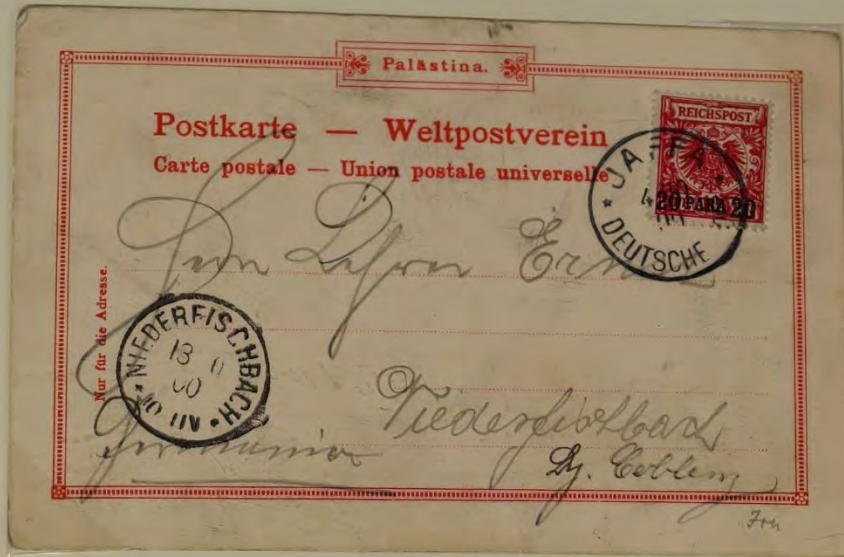 Palästina.
Postkarte — Weltpostverein
Carte postale — Union postale universelle
REICHSPOST
20 PARA 20
JAFFA
DEUTSCHE
Nur für die Adresse.
Lehrer
NIEDERFISCHBACH
13
00
Niederfischbach
Germania
Bz. Coblenz